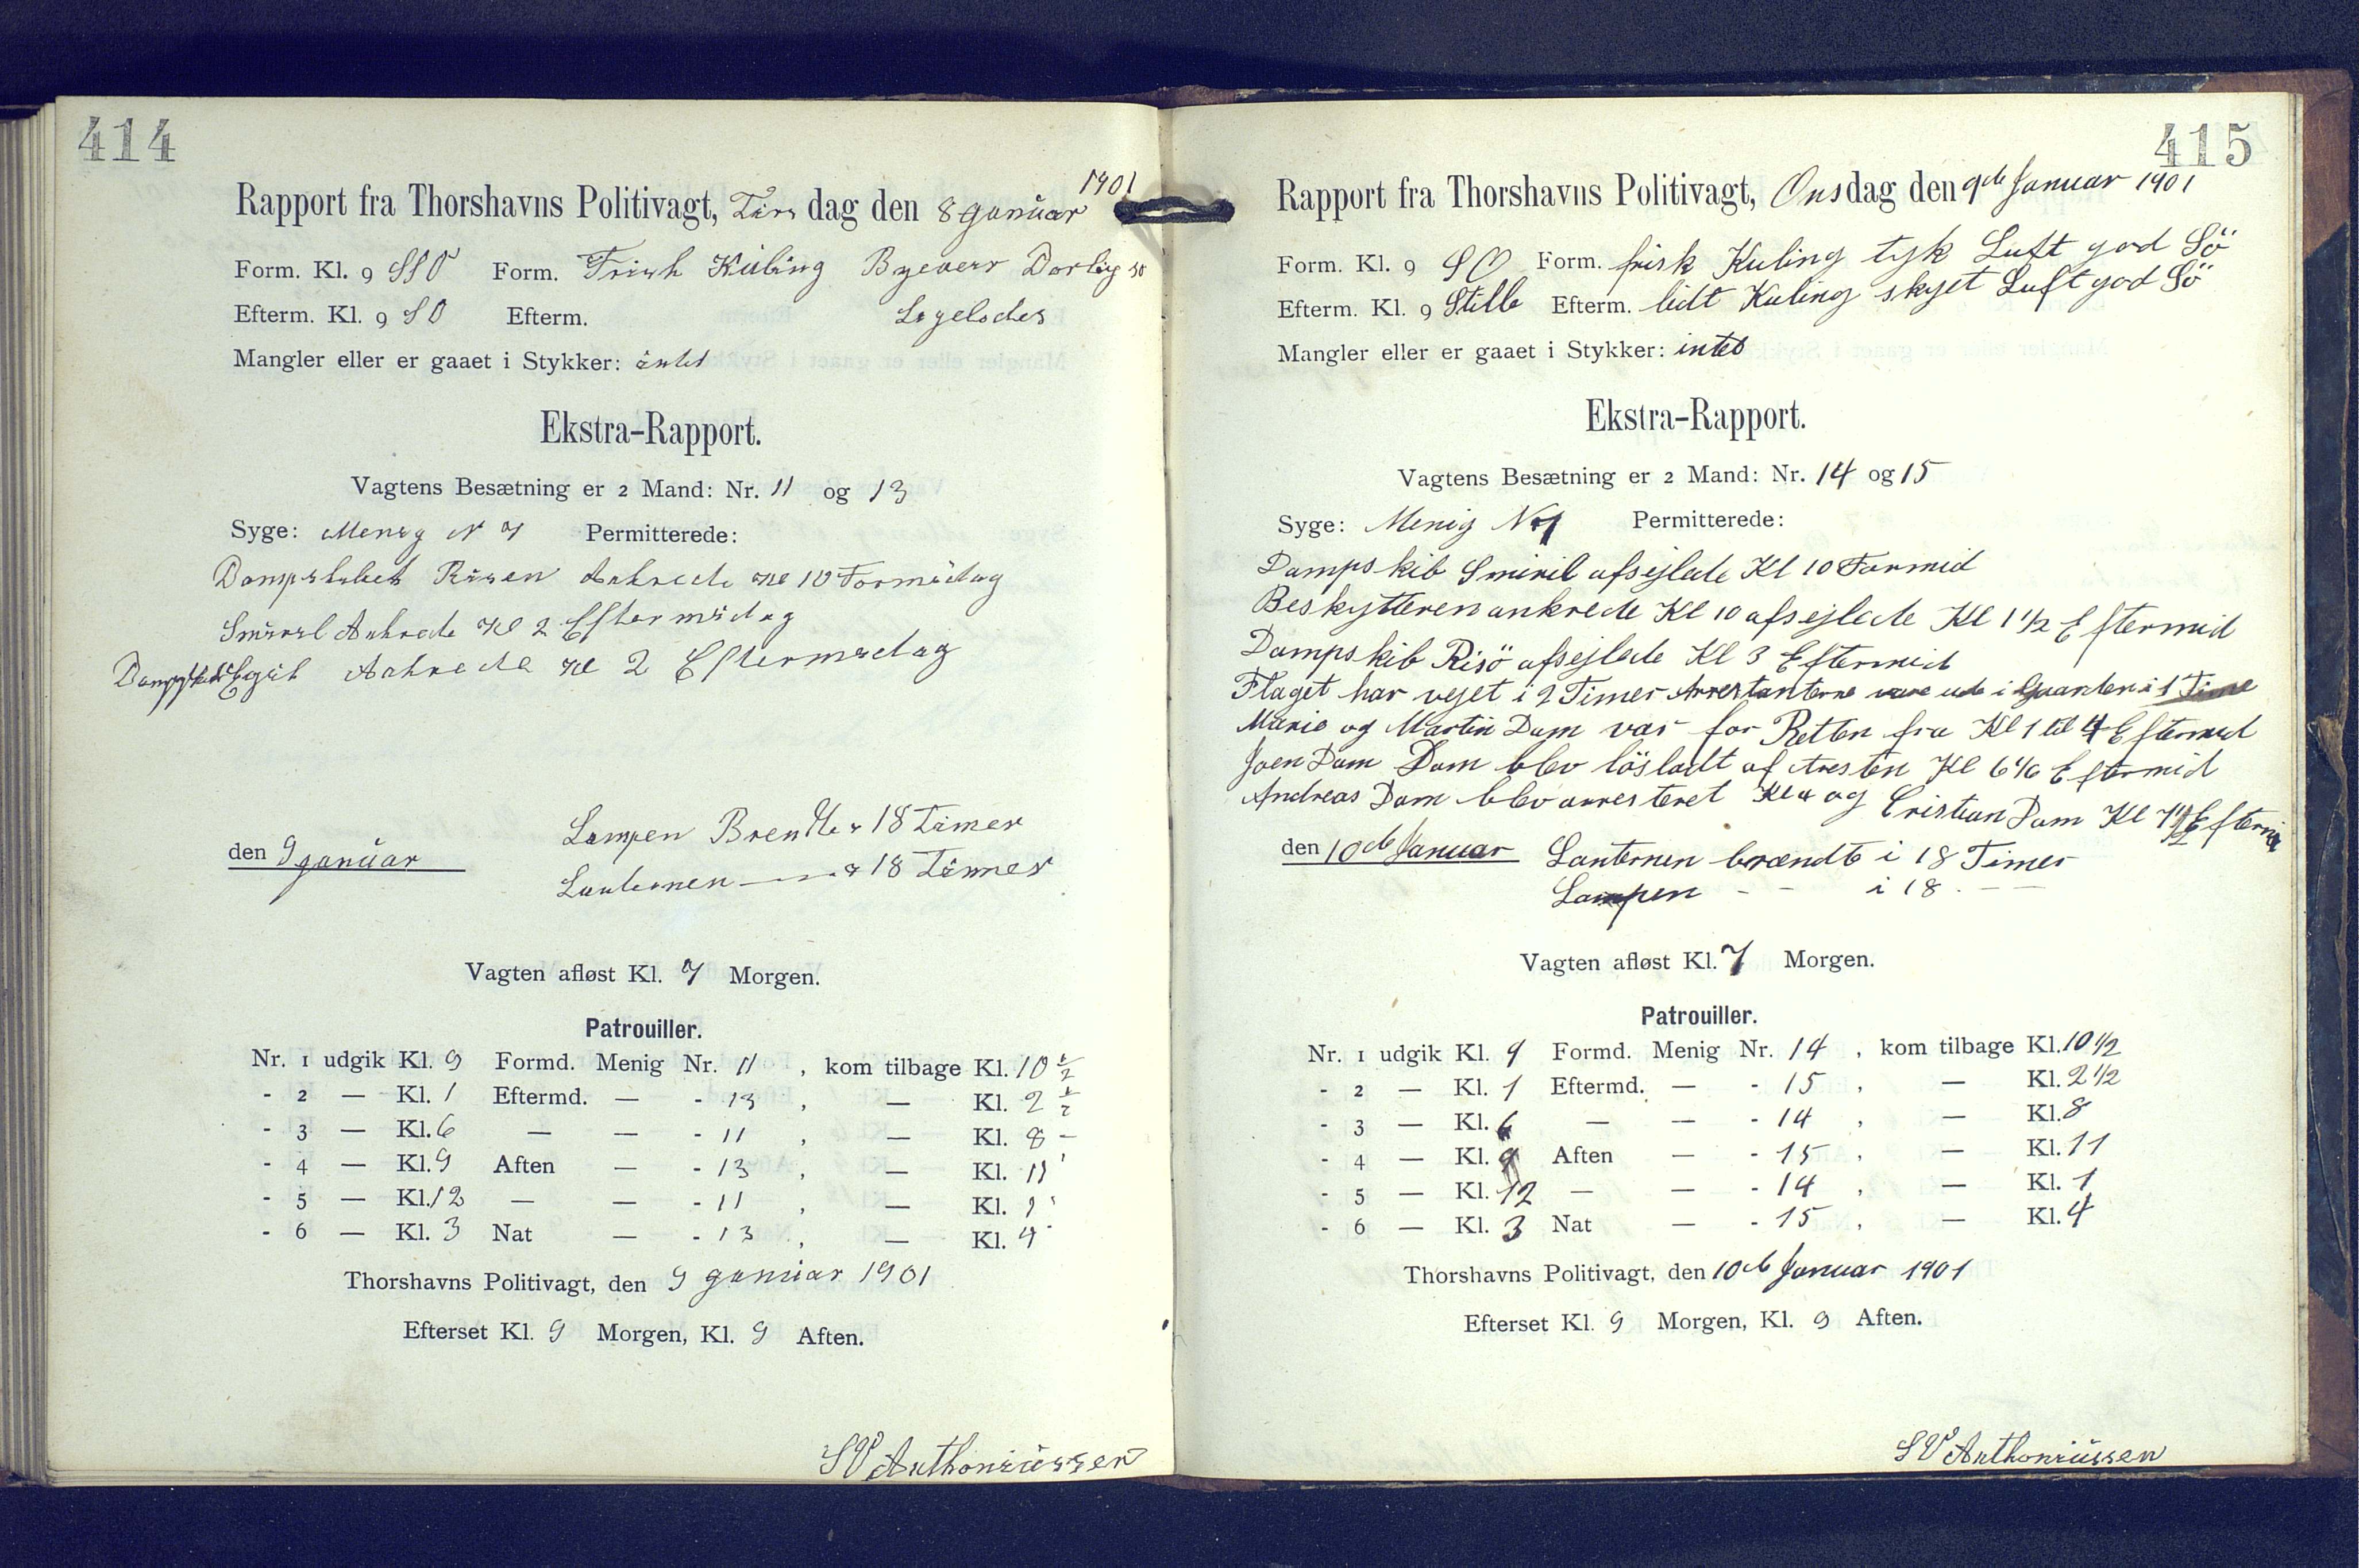 414
1901
Rapport fra Thorshavns Politivagt, Tirs dag den 8 Januar
Form. Kl. 9 SSO Form. Frisk Kuling Byever Dorlig sö
Efterm. Kl. 9 SO Efterm. Ligeledes
Mangler eller er gaaet i Stykker: intet
Ekstra-Rapport.
Vagtens Besætning er 2 Mand: Nr. 11 og 13
Syge: Menig N 7 Permitterede:
Dampskibet Ankrede Kl 10 Formidag
Smiril Ankrede Kl 2 Eftermidag
Egil Ankrede Kl 2 Eftermidag
Lampen Brendte 18 Timer
den 9 Januar
Lanternen — 18 Timer
Vagten afløst Kl. 7 Morgen.
Patrouiller.
Nr. 1 udgik Kl. 9 Formd. Menig Nr. 11 , kom tilbage Kl. 10 1/2
- 2 — Kl. 1 Eftermd. — - 13 , — Kl. 2 1/2
- 3 — Kl. 6 — — - 11 , — Kl. 8 -
- 4 — Kl. 9 Aften — - 13 , — Kl. 11
- 5 — Kl. 12 — — - 11 , — Kl. 1
- 6 — Kl. 3 Nat — - 13 , — Kl. 4
Thorshavns Politivagt, den 9 Januar 1901
Efterset Kl. 9 Morgen, Kl. 9 Aften.
SV Anthoniussen
415
Rapport fra Thorshavns Politivagt, Onsdag den 9de Januar 1901
Form. Kl. 9 SO Form. frisk Kuling tyk Luft god Sö
Efterm. Kl. 9 Stille Efterm. lidt Kuling skyet Luft god Sö
Mangler eller er gaaet i Stykker: intet
Ekstra-Rapport.
Vagtens Besætning er 2 Mand: Nr. 14 og 15
Syge: Menig No 7 Permitterede:
Dampskib Smiril afsejlede Kl 10 Formid
Beskytteren ankrede Kl 10 afsejlede Kl 1 1/2 Eftermid
Dampskib Risö afsejlede Kl 3 Eftermid
Flaget har vejet i 2 Timer Arrestanterne vare ude i Gaarden i 1 Time
Marie og Martin Dam var for Retten fra Kl 1 til 4 Eftermid
Joen Dam Dam blev lösladt af Aresten Kl 6 Eftermid
Andreas Dam blev arresteret Kl 4 og Cristian Dam Kl 7 1/2
den 10de Januar Lanternen brændte i 18 Timer
Lampen - - i 18 - —
Vagten afløst Kl. 7 Morgen.
Patrouiller.
Nr. 1 udgik Kl. 9 Formd. Menig Nr. 14 , kom tilbage Kl. 10 1/2
- 2 — Kl. 1 Eftermd. — - 15 , — Kl. 2 1/2
- 3 — Kl. 6 — — - 14 , — Kl. 8
- 4 — Kl. 9 Aften — - 15 , — Kl. 11
- 5 — Kl. 12 — — - 14 , — Kl. 1
- 6 — Kl. 3 Nat — - 15 , — Kl. 4
Thorshavns Politivagt, den 10de Januar 1901
Efterset Kl. 9 Morgen, Kl. 9 Aften.
SV Anthoniussen